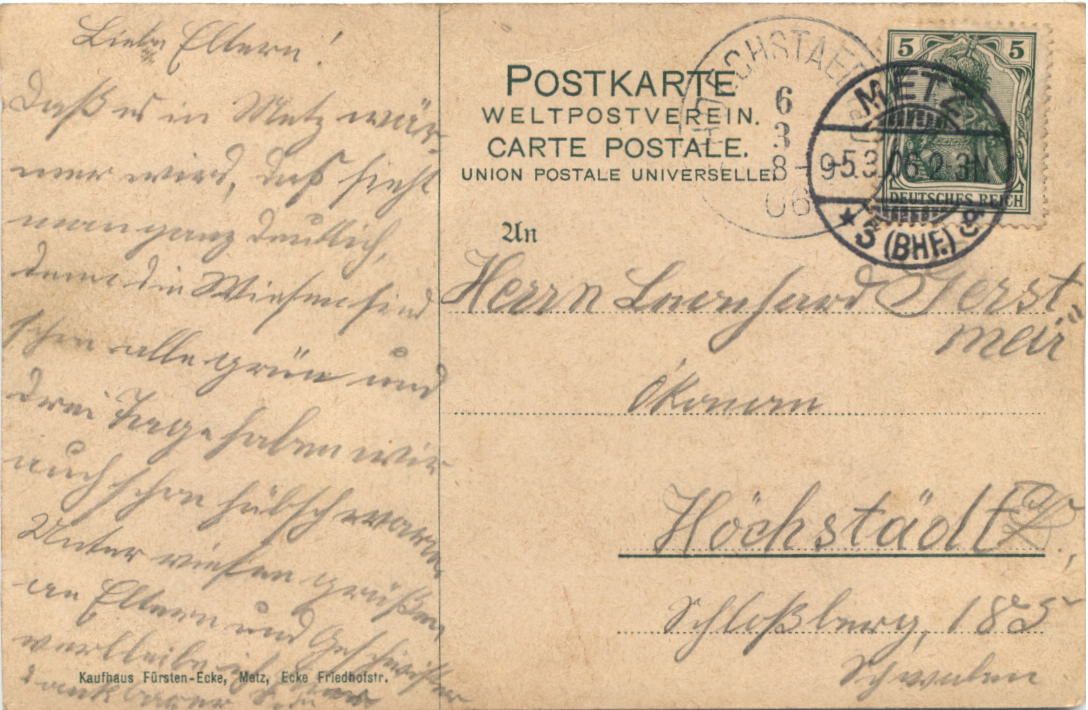 Liebe Eltern!
Daß es in Metz wär-
mer wird, daß sieht
man ganz deutlich,
denn die Wiesen sind
schon alle grün und
drei Tage haben wir
auch schon hübsch warm.
Unter vielen grüßen
an Eltern und Geschwister
verbleibe ich euer
dankbarer Sohn
Kaufhaus Fürsten-Ecke, Metz, Ecke Friedhofstr.
POSTKARTE
WELTPOSTVEREIN.
CARTE POSTALE.
UNION POSTALE UNIVERSELLE.
HOECHSTAED
6
3
8-
06
5 5
DEUTSCHES REICH
METZ
5.3.06.2-3N
5 (BHF.)
An
Herrn Leonhard Gerst
meir
Ökonom
Höchstädt
Schloßberg, 185
Schwaben